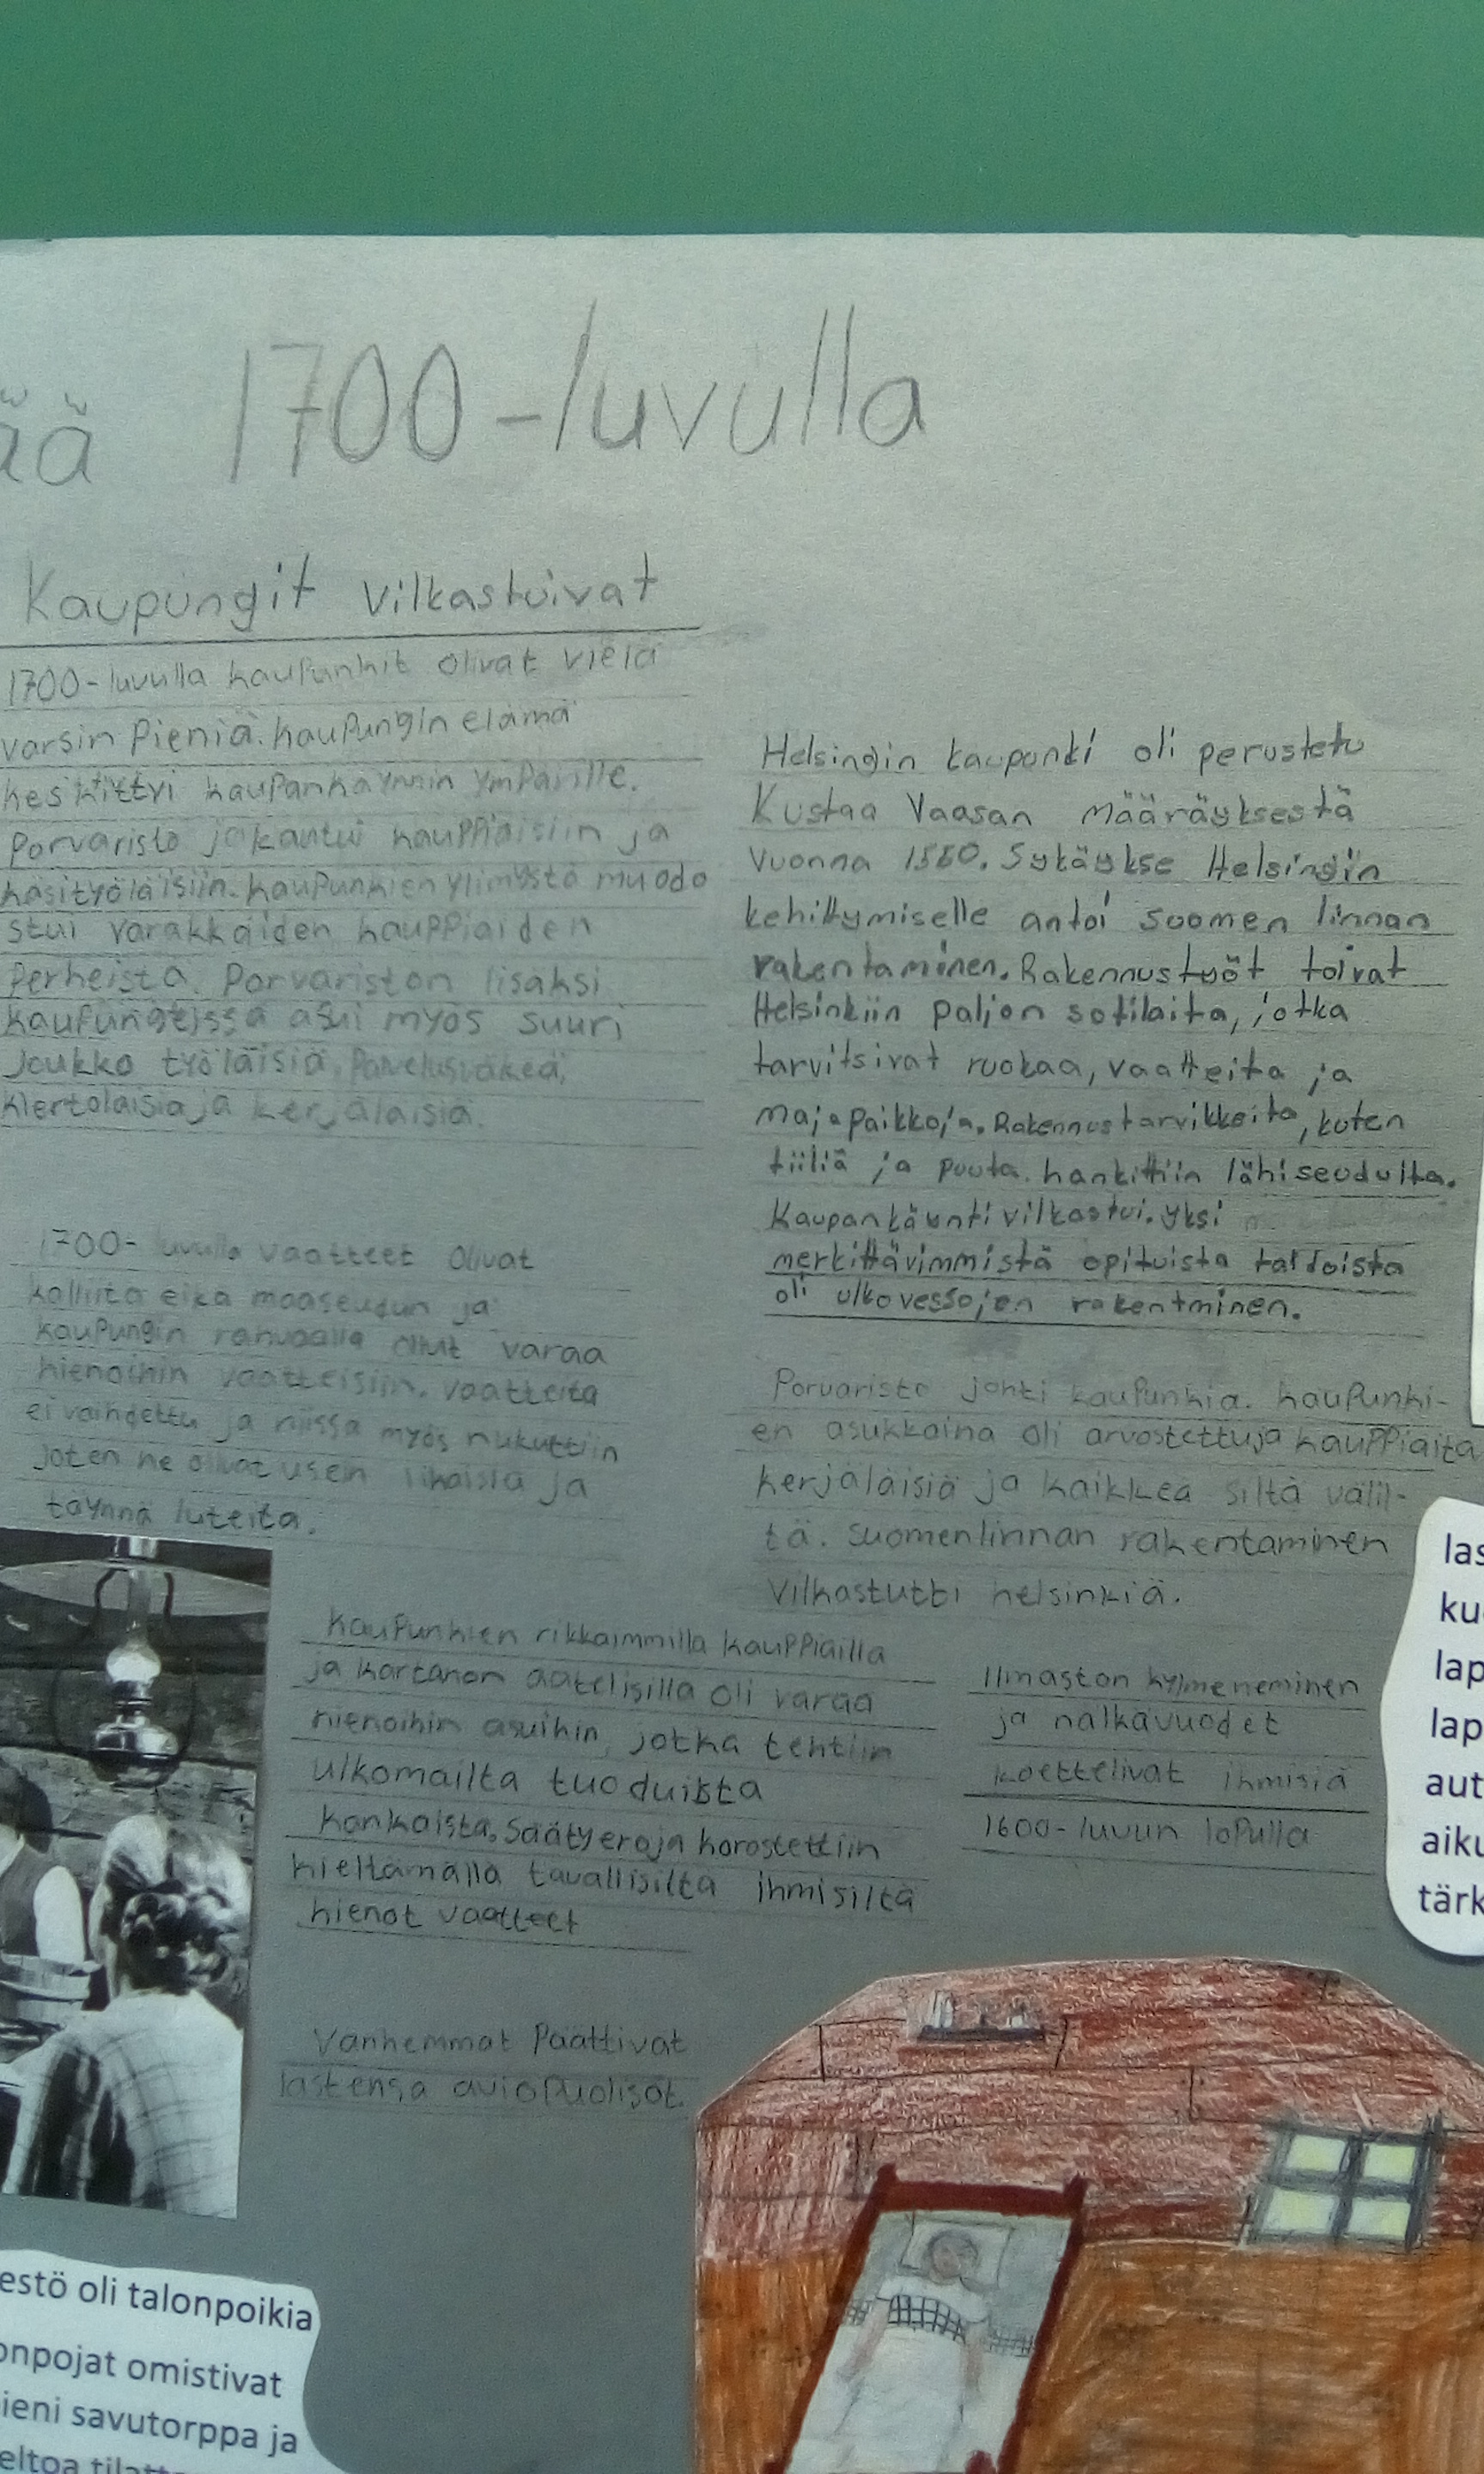 ää 1700-luvulla
Kaupungit vilkastuivat
1700-luvulla kaupunkit olivat vielä
varsin pieniä. kaupungin elämä
keskittyi kaupankäynnin ympärille.
porvaristo jakautui kauppiaisiin ja
käsityöläisiin. kaupunkien ylimystö muodo
stui varakkaiden kauppiaiden
perheistä. Porvariston lisäksi
kaupungeissa asui myös suuri
joukko työläisiä, palvelusväkeä,
kiertolaisia ja kerjäläisiä.
1700-luvulla vaatteet olivat
kalliita eikä maaseudun ja
kaupungin rahvaalla ollut varaa
hienoihin vaatteisiin. vaatteita
ei vaihdettu ja niissä myös nukuttiin
joten ne olivat usein likaisia ja
täynnä luteita.
Helsingin kaupunki oli perustetu
Kustaa Vaasan määräyksestä
vuonna 1550. Sykäykse Helsingin
kehittymiselle antoi suomen linnan
rakentaminen. Rakennustyöt toivat
Helsinkiin paljon sotilaita, jotka
tarvitsivat ruokaa, vaatteita ja
majapaikkoja. Rakennustarvikkeita, kuten
tiiliä ja puuta hankittiin lähiseudulta.
Kaupankäynti vilkastui. yksi
merkittävimmistä opituista taidoista
oli ulkovessojen rakentminen.
Porvaristo johti kaupunkia. kaupunki-
en asukkaina oli arvostettuja kauppiaita
kerjäläisiä ja kaikkea siltä välil-
tä. suomenlinnan rakentaminen
vilkastutti helsinkiä.
kaupunkien rikkaimmilla kauppiailla
ja kartanon aatelisilla oli varaa
hienoihin asuihin, jotka tehtiin
ulkomailta tuoduista
kankaista. Säätyeroja korostettiin
kieltämällä tavallisilta ihmisiltä
hienot vaatteet
Ilmaston kylmeneminen
ja nälkävuodet
koettelivat ihmisiä
1600-luvun lopulla
Vanhemmat päättivat
lastensa aviopuolisot.
las
ku
lap
lap
aut
aiku
tärk
estö oli talonpoikia
onpojat omistivat
ieni savutorppa ja
eltoa